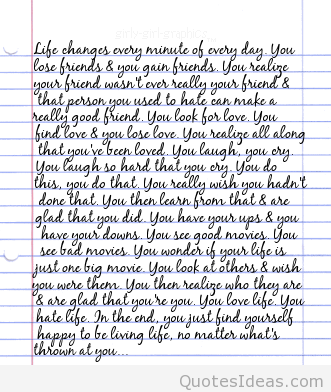 Life changes every minute of every day. You
lose friends & you gain friends. You realize
your friend wasn't ever really your friend &
that person you used to hate can make a
really good friend. You look for love. You
find love & you lose love. You realize all along
that you've been loved. You laugh, you cry.
You laugh so hard that you cry. You do
this, you do that. You really wish you hadn't
done that. You then learn from that & are
glad that you did. You have your ups & you
have your downs. You see good movies. You
see bad movies. You wonder if your life is
just one big movie. You look at others & wish
you were them. You then realize who they are
& are glad that you're you. You love life. You
hate life. In the end, you just find yourself
happy to be living life, no matter what's
thrown at you...
QuotesIdeas.com